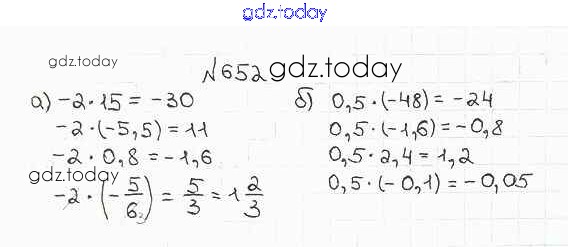 gdz.today
gdz.today
№652 gdz.today
а) -2 · 15 = -30
-2 · (-5,5) = 11
-2 · 0,8 = -1,6
gdz.today
-2 · (-5/6₃) = 5/3 = 1 2/3
б) 0,5 · (-48) = -24
0,5 · (-1,6) = -0,8
0,5 · 2,4 = 1,2
0,5 · (-0,1) = -0,05